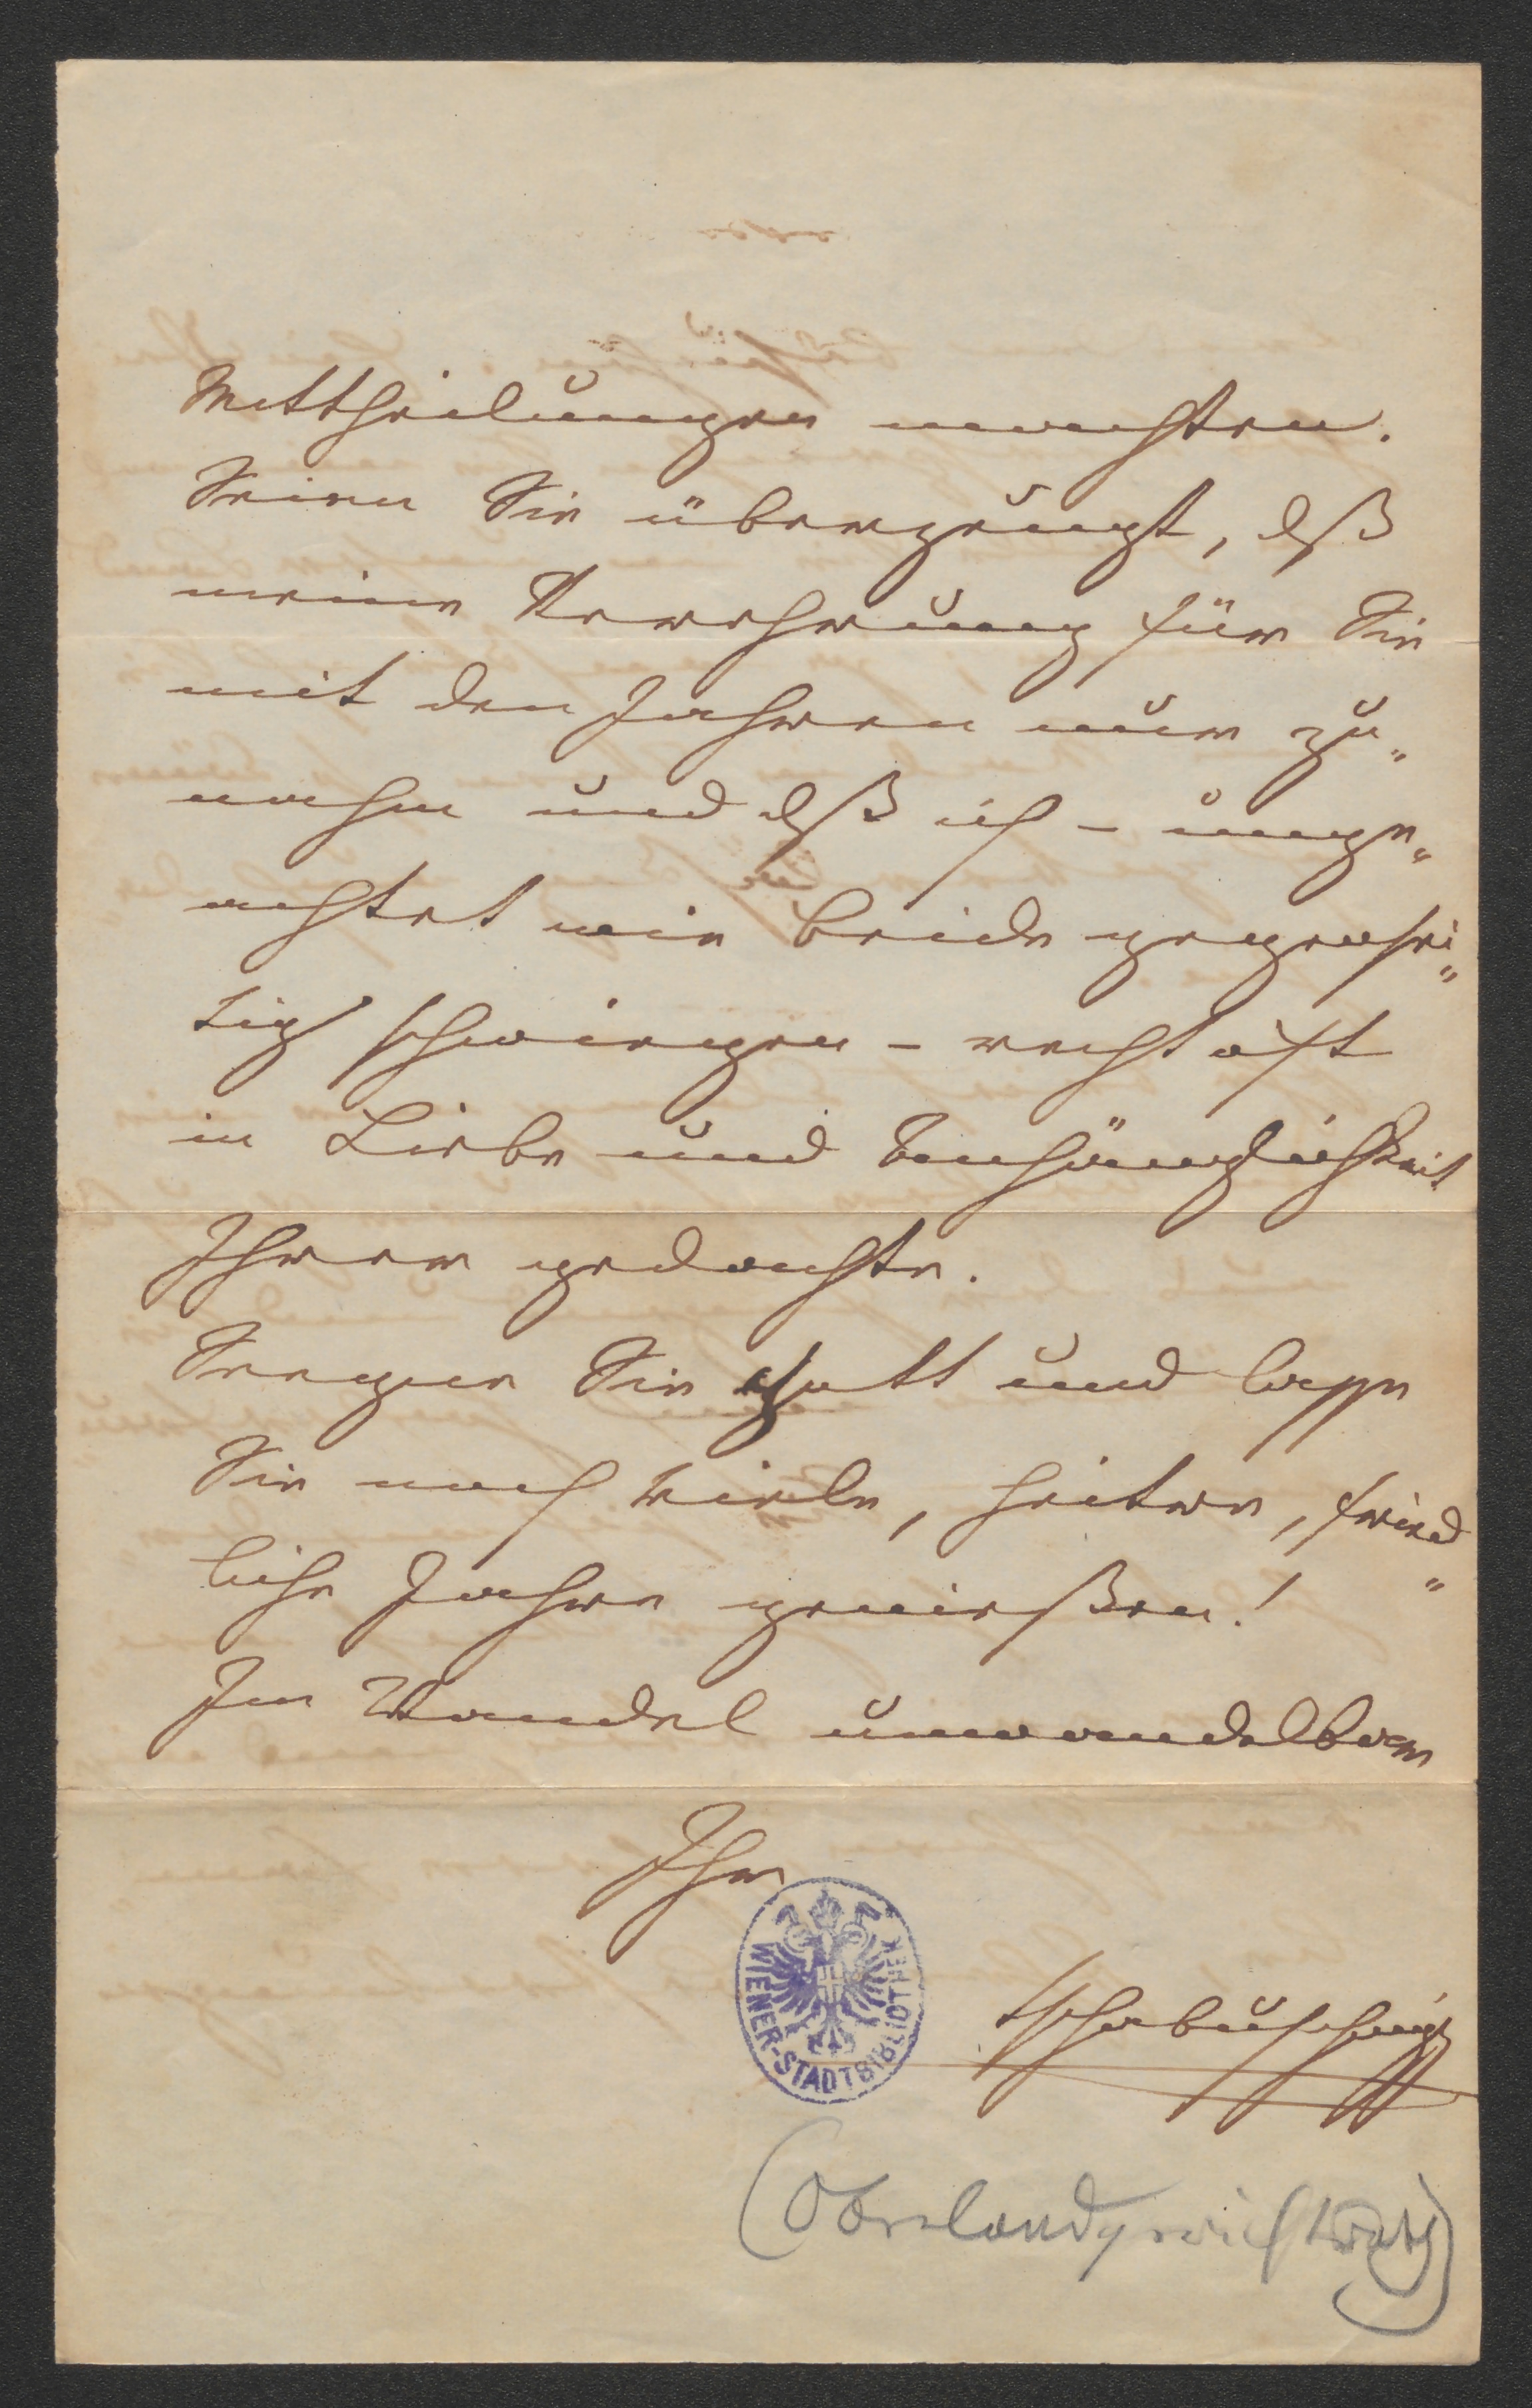 Mittheilungen machten.
Seien Sie überzeugt, dß
meine Verehrung für Sie
mit den Jahren nur zu„
nahm und dß ich – unge„
achtet wir beide gegensei„
tig schwiegen – recht oft
in Liebe und Anhänglichkeit
Ihrer gedachte.
Seegne Sie Gott und lasse
Sie noch viele, heitere, fried„
liche Jahre genießen!
Im Wandel unwandelbar
Ihr
WIENER-STADTBIBLIOTHEK
Tschabuschnigg
(Oberlandgerichtsrath)